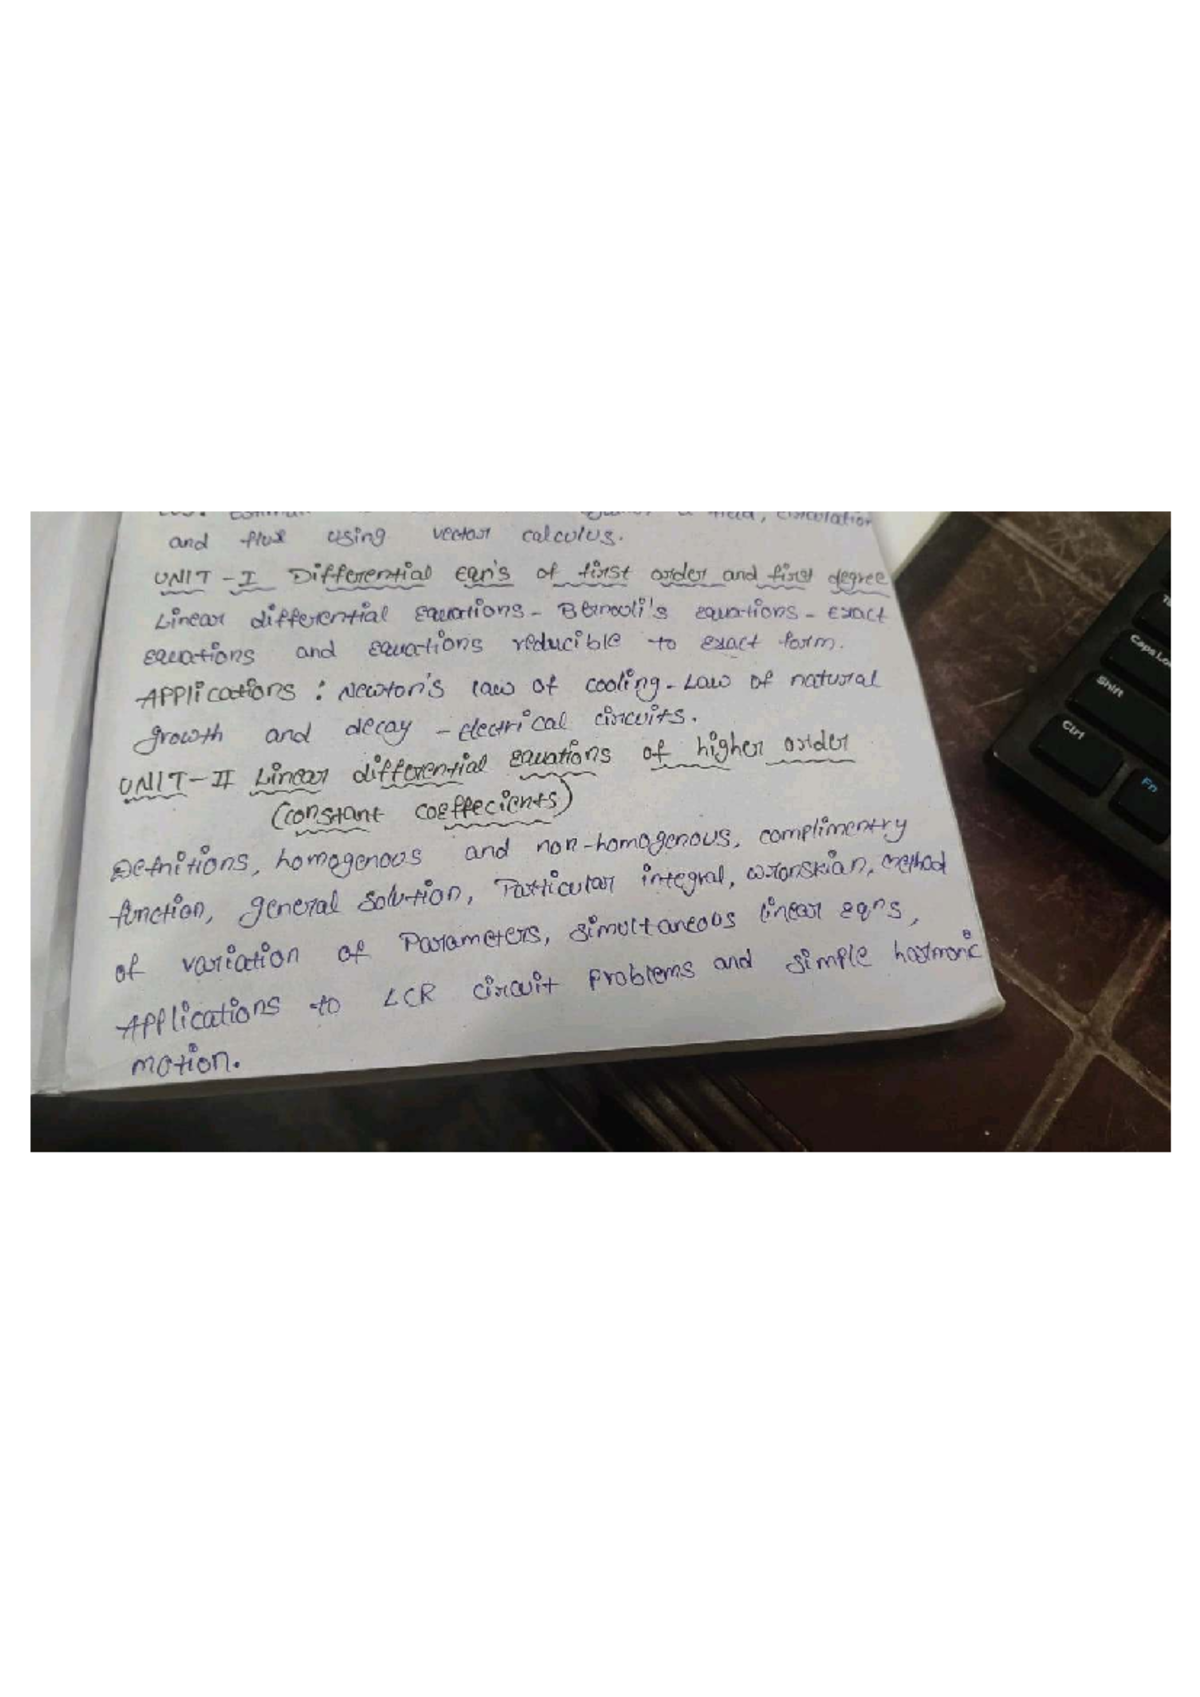 and flux using vector calculus.
UNIT-I Differential Eqn's of first order and first degree
Linear differential Equations - Bernooli's equations - Exact
equations and equations reducible to exact form.
Applications : Newton's law of cooling - Law of natural
growth and decay - Electrical circuits.
UNIT-II Linear differential equations of higher order
(constant coeffecients)
Definitions, homogenous and non-homogenous, complimentry
function, general solution, Particular integral, wronskian, method
of variation of Parameters, simultaneous linear eqns,
Applications to LCR circuit Problems and simple harmonic
motion.
Caps Lo
Shift
Ctrl
Fn